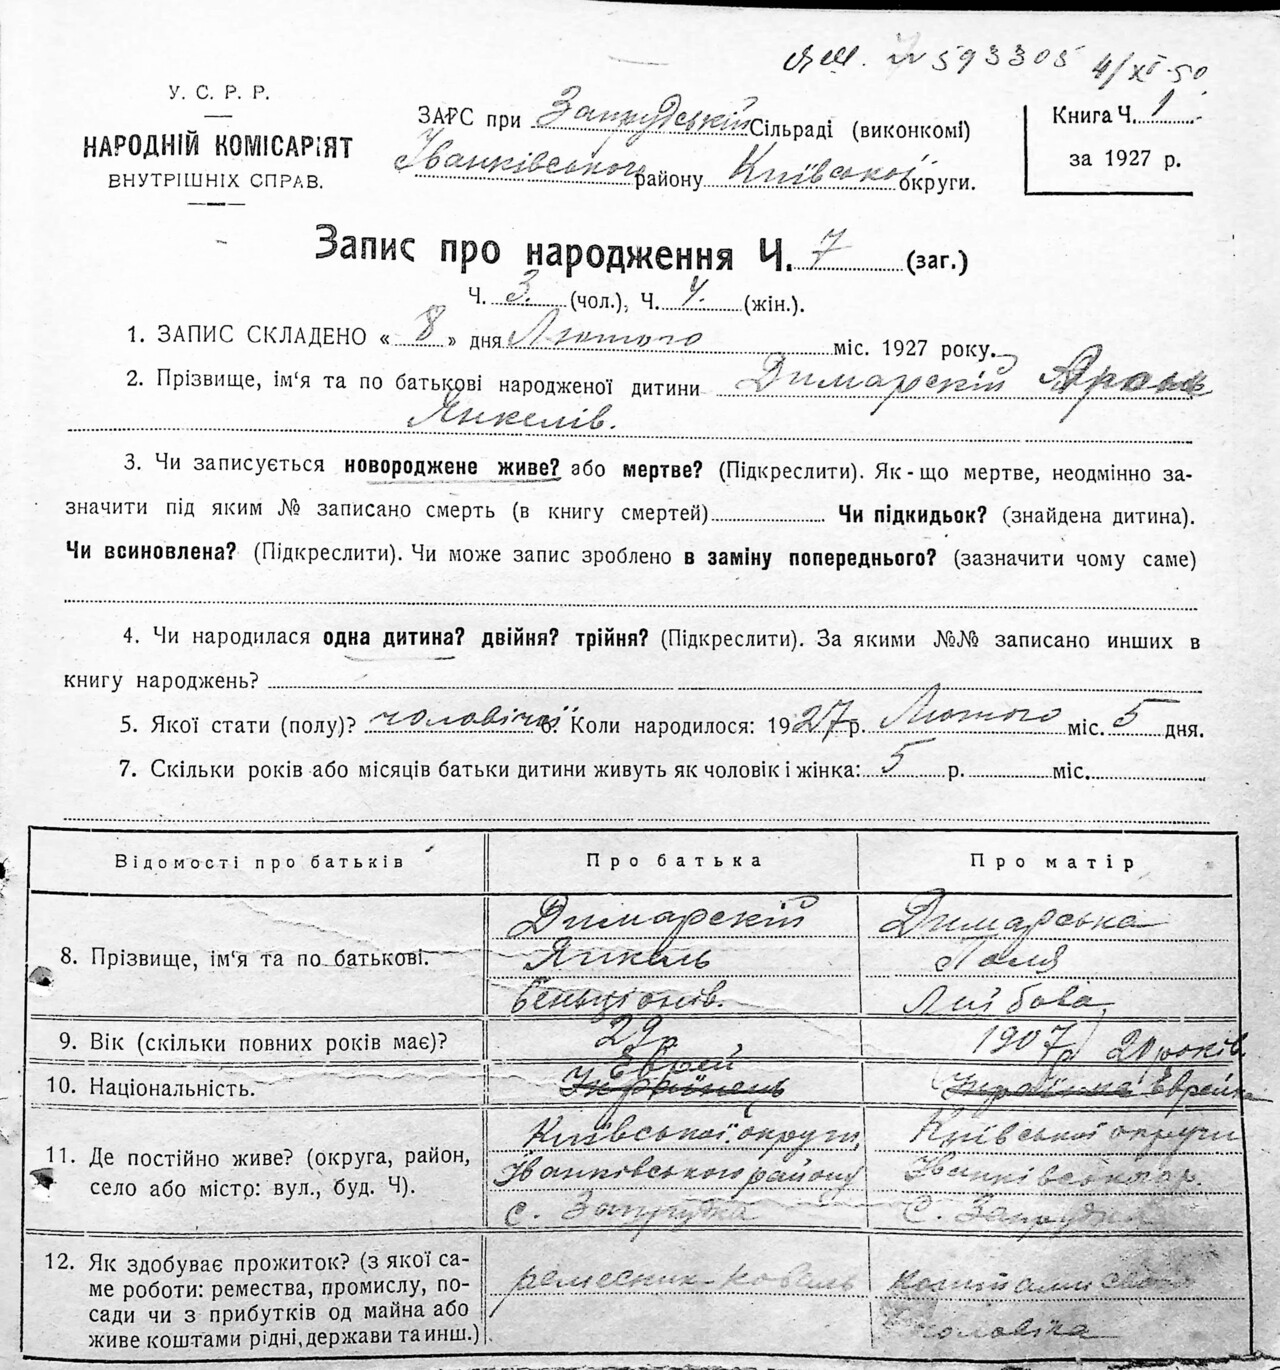 ЯШ. № 593305 4/XI-50.
У. С. Р. Р.
НАРОДНІЙ КОМІСАРІЯТ
ВНУТРІШНІХ СПРАВ.
ЗАГС при Запрудській Сільраді (виконкомі)
Іванківського району Київської округи.
Книга Ч. 1
за 1927 р.
Запис про народження Ч. 7 (заг.)
Ч. 3. (чол.), Ч. 4. (жін.).
1. ЗАПИС СКЛАДЕНО « 8 » дня Лютого міс. 1927 року.
2. Прізвище, ім'я та по батькові народженої дитини Димарскій Арон
Янкелів.
3. Чи записується новороджене живе? або мертве? (Підкреслити). Як-що мертве, неодмінно за-
значити під яким № записано смерть (в книгу смертей) Чи підкидьок? (знайдена дитина).
Чи всиновлена? (Підкреслити). Чи може запис зроблено в заміну попереднього? (зазначити чому саме)
4. Чи народилася одна дитина? двійня? трійня? (Підкреслити). За якими №№ записано инших в
книгу народжень?
5. Якої стати (полу)? чоловічої 6. Коли народилося: 1927 р. Лютого міс. 5 дня.
7. Скільки років або місяців батьки дитини живуть як чоловік і жінка: 5 р. міс.
Відомості про батьків Про батька Про матір
8. Прізвище, ім'я та по батькові.
Димарскій
Янкель
Беньціонів.
Димарська
Поля
Лейбова
9. Вік (скільки повних років має)? 29 р 1907 р 20 років.
10. Національність. Еврей Українець Українка Еврейка
11. Де постійно живе? (округа, район,
село або місто: вул., буд. Ч).
Київської округи,
Іванківського району
с. Запрудка
Київської округи
Іванківськ. р.
с. Запрудка
12. Як здобуває прожиток? (з якої са-
ме роботи: ремества, промислу, по-
сади чи з прибутків од майна або
живе коштами рідні, держави та инш.)
ремесник-коваль
коштами свого
чоловіка